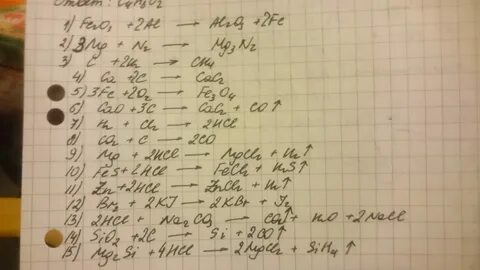 Ответ: C₄H₈O₂
1) Fe₂O₃ + 2Al → Al₂O₃ + 2Fe
2) 3Mg + N₂ → Mg₃N₂
3) C + 2H₂ → CH₄
4) Ca + 2C → CaC₂
5) 3Fe + 2O₂ → Fe₃O₄
6) CaO + 3C → CaC₂ + CO↑
7) H₂ + Cl₂ → 2HCl
8) CO₂ + C → 2CO
9) Mg + 2HCl → MgCl₂ + H₂↑
10) FeS + 2HCl → FeCl₂ + H₂S↑
11) Zn + 2HCl → ZnCl₂ + H₂↑
12) Br₂ + 2KJ → 2KBr + J₂
13) 2HCl + Na₂CO₃ → CO₂↑ + H₂O + 2NaCl
14) SiO₂ + 2C → Si + 2CO↑
15) Mg₂Si + 4HCl → 2MgCl₂ + SiH₄↑